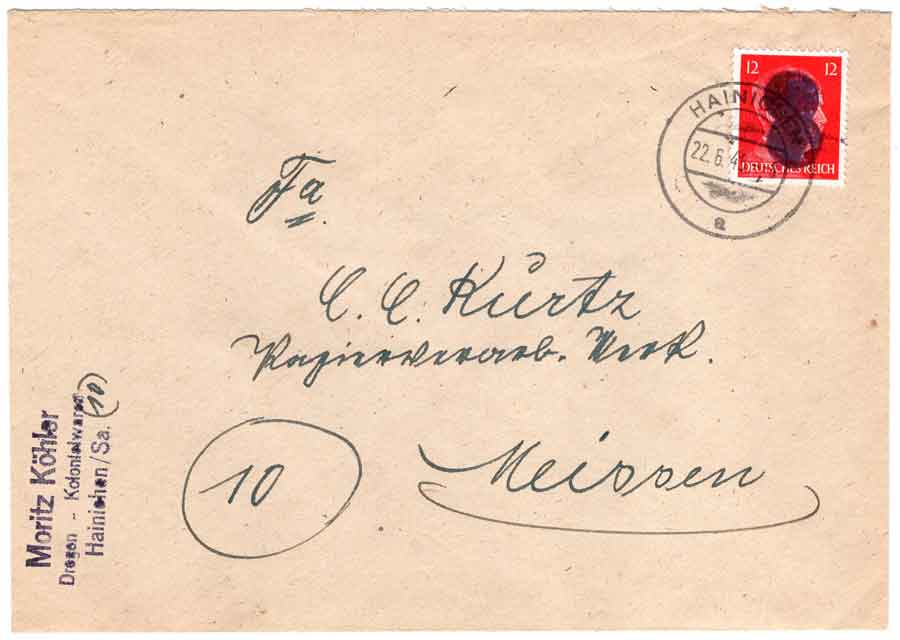 12 12
DEUTSCHES REICH
HAINICHEN
22.6.4
a
Fa.
C. C. Kurtz
Papierverarb. Werk.
10
Meissen
Moritz Köhler
Drogen - Kolonialwaren
Hainichen/Sa. (10)